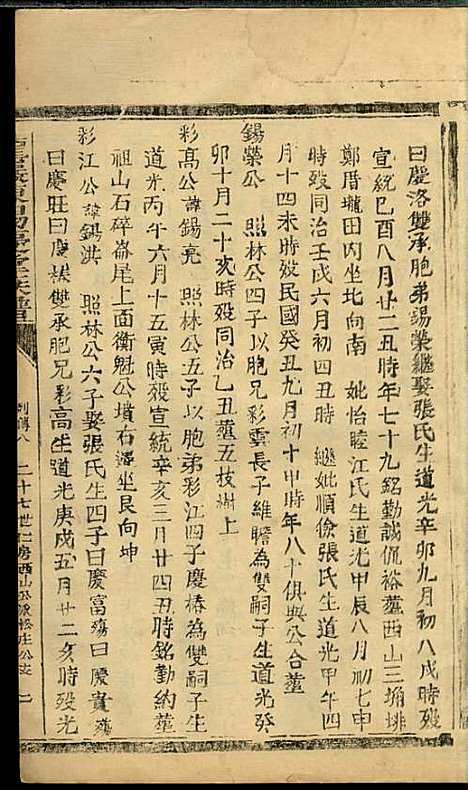 曰慶洛雙承胞弟錫榮繼娶張氏生道光辛卯九月初八戌時歿
宣統己酉八月廿二丑時年七十九銘勤誠侃裕塟西山三塘垪
鄭厝壠田内坐北向南 妣怡睦江氏生道光甲辰八月初七申
時歿同治壬戌六月初四丑時 繼妣順儉張氏生道光甲午四
月十四未時歿民國癸丑九月初十申時年八十俱與公合塟
錫榮公 照林公四子以胞兄彩雲長子維瞻為雙嗣子生道光癸
卯十月二十亥時歿同治乙丑塟五枝樹上
彩高公諱錫亮 照林公五子以胞弟彩江四子慶椿為雙嗣子生
道光丙午六月十五寅時歿宣統辛亥三月廿四丑時銘勤約塟
祖山石碎崙尾上面衡魁公墳右邊坐艮向坤
彩江公諱錫洪 照林公六子娶張氏生四子曰慶富殤曰慶貴殤
曰慶旺曰慶椿雙承胞兄彩高生道光庚戌五月廿二亥時歿光
列傳八 二十七世仁房西山公派松庄公支 二